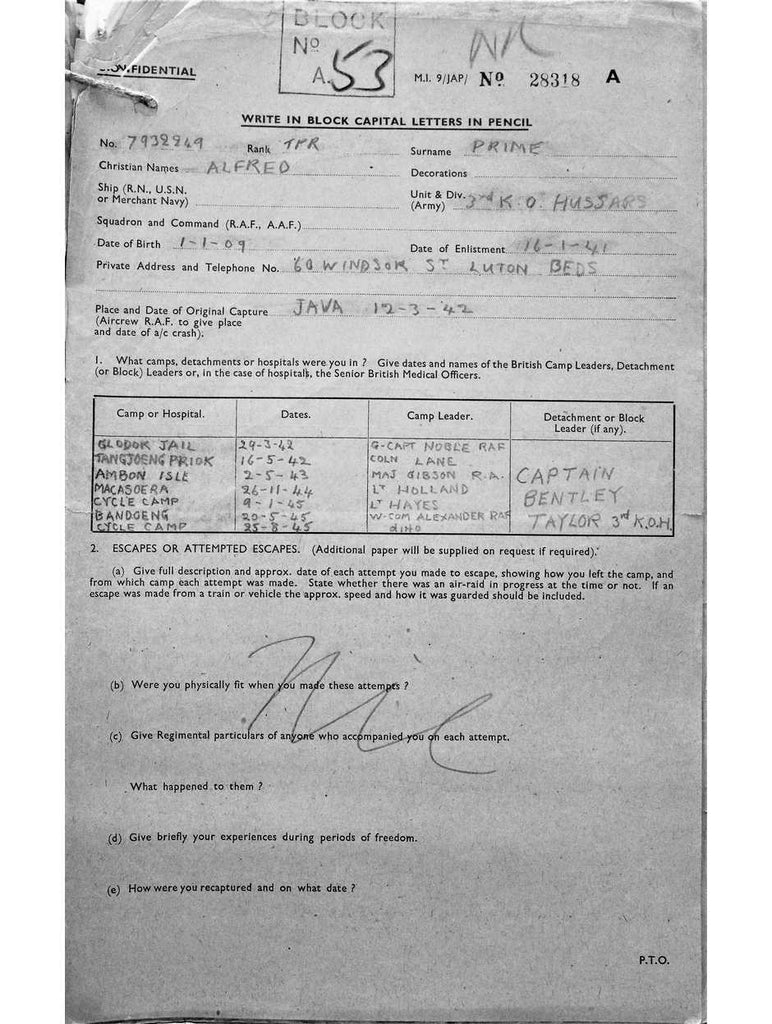 BLOCK
No
A.53
NIL
CONFIDENTIAL
M.I. 9/JAP/ No 28318 A
WRITE IN BLOCK CAPITAL LETTERS IN PENCIL
No. 7932249 Rank TPR Surname PRIME
Christian Names ALFRED Decorations
Ship (R.N., U.S.N. or Merchant Navy) Unit & Div. (Army) 3rd K.O. HUSSARS
Squadron and Command (R.A.F., A.A.F.)
Date of Birth 1-1-09 Date of Enlistment 16-1-41
Private Address and Telephone No. 60 WINDSOR ST LUTON BEDS
Place and Date of Original Capture JAVA 12-3-42
(Aircrew R.A.F. to give place
and date of a/c crash).
1. What camps, detachments or hospitals were you in ? Give dates and names of the British Camp Leaders, Detachment
(or Block) Leaders or, in the case of hospitals, the Senior British Medical Officers.
Camp or Hospital. Dates. Camp Leader. Detachment or Block Leader (if any).
GLODOK JAIL 29-3-42 G-CAPT NOBLE RAF
TANGJOENG PRIOK 16-5-42 COLN LANE
AMBON ISLE 2-5-43 MAJ GIBSON R.A. CAPTAIN
MACASOERA 26-11-44 LT HOLLAND BENTLEY
CYCLE CAMP 9-1-45 LT HAYES
BANDOENG 20-5-45 W-COM ALEXANDER RAF TAYLOR 3rd K.O.H.
CYCLE CAMP 25-8-45 DITTO
2. ESCAPES OR ATTEMPTED ESCAPES. (Additional paper will be supplied on request if required).
(a) Give full description and approx. date of each attempt you made to escape, showing how you left the camp, and
from which camp each attempt was made. State whether there was an air-raid in progress at the time or not. If an
escape was made from a train or vehicle the approx. speed and how it was guarded should be included.
Nil
(b) Were you physically fit when you made these attempts ?
(c) Give Regimental particulars of anyone who accompanied you on each attempt.
What happened to them ?
(d) Give briefly your experiences during periods of freedom.
(e) How were you recaptured and on what date ?
P.T.O.